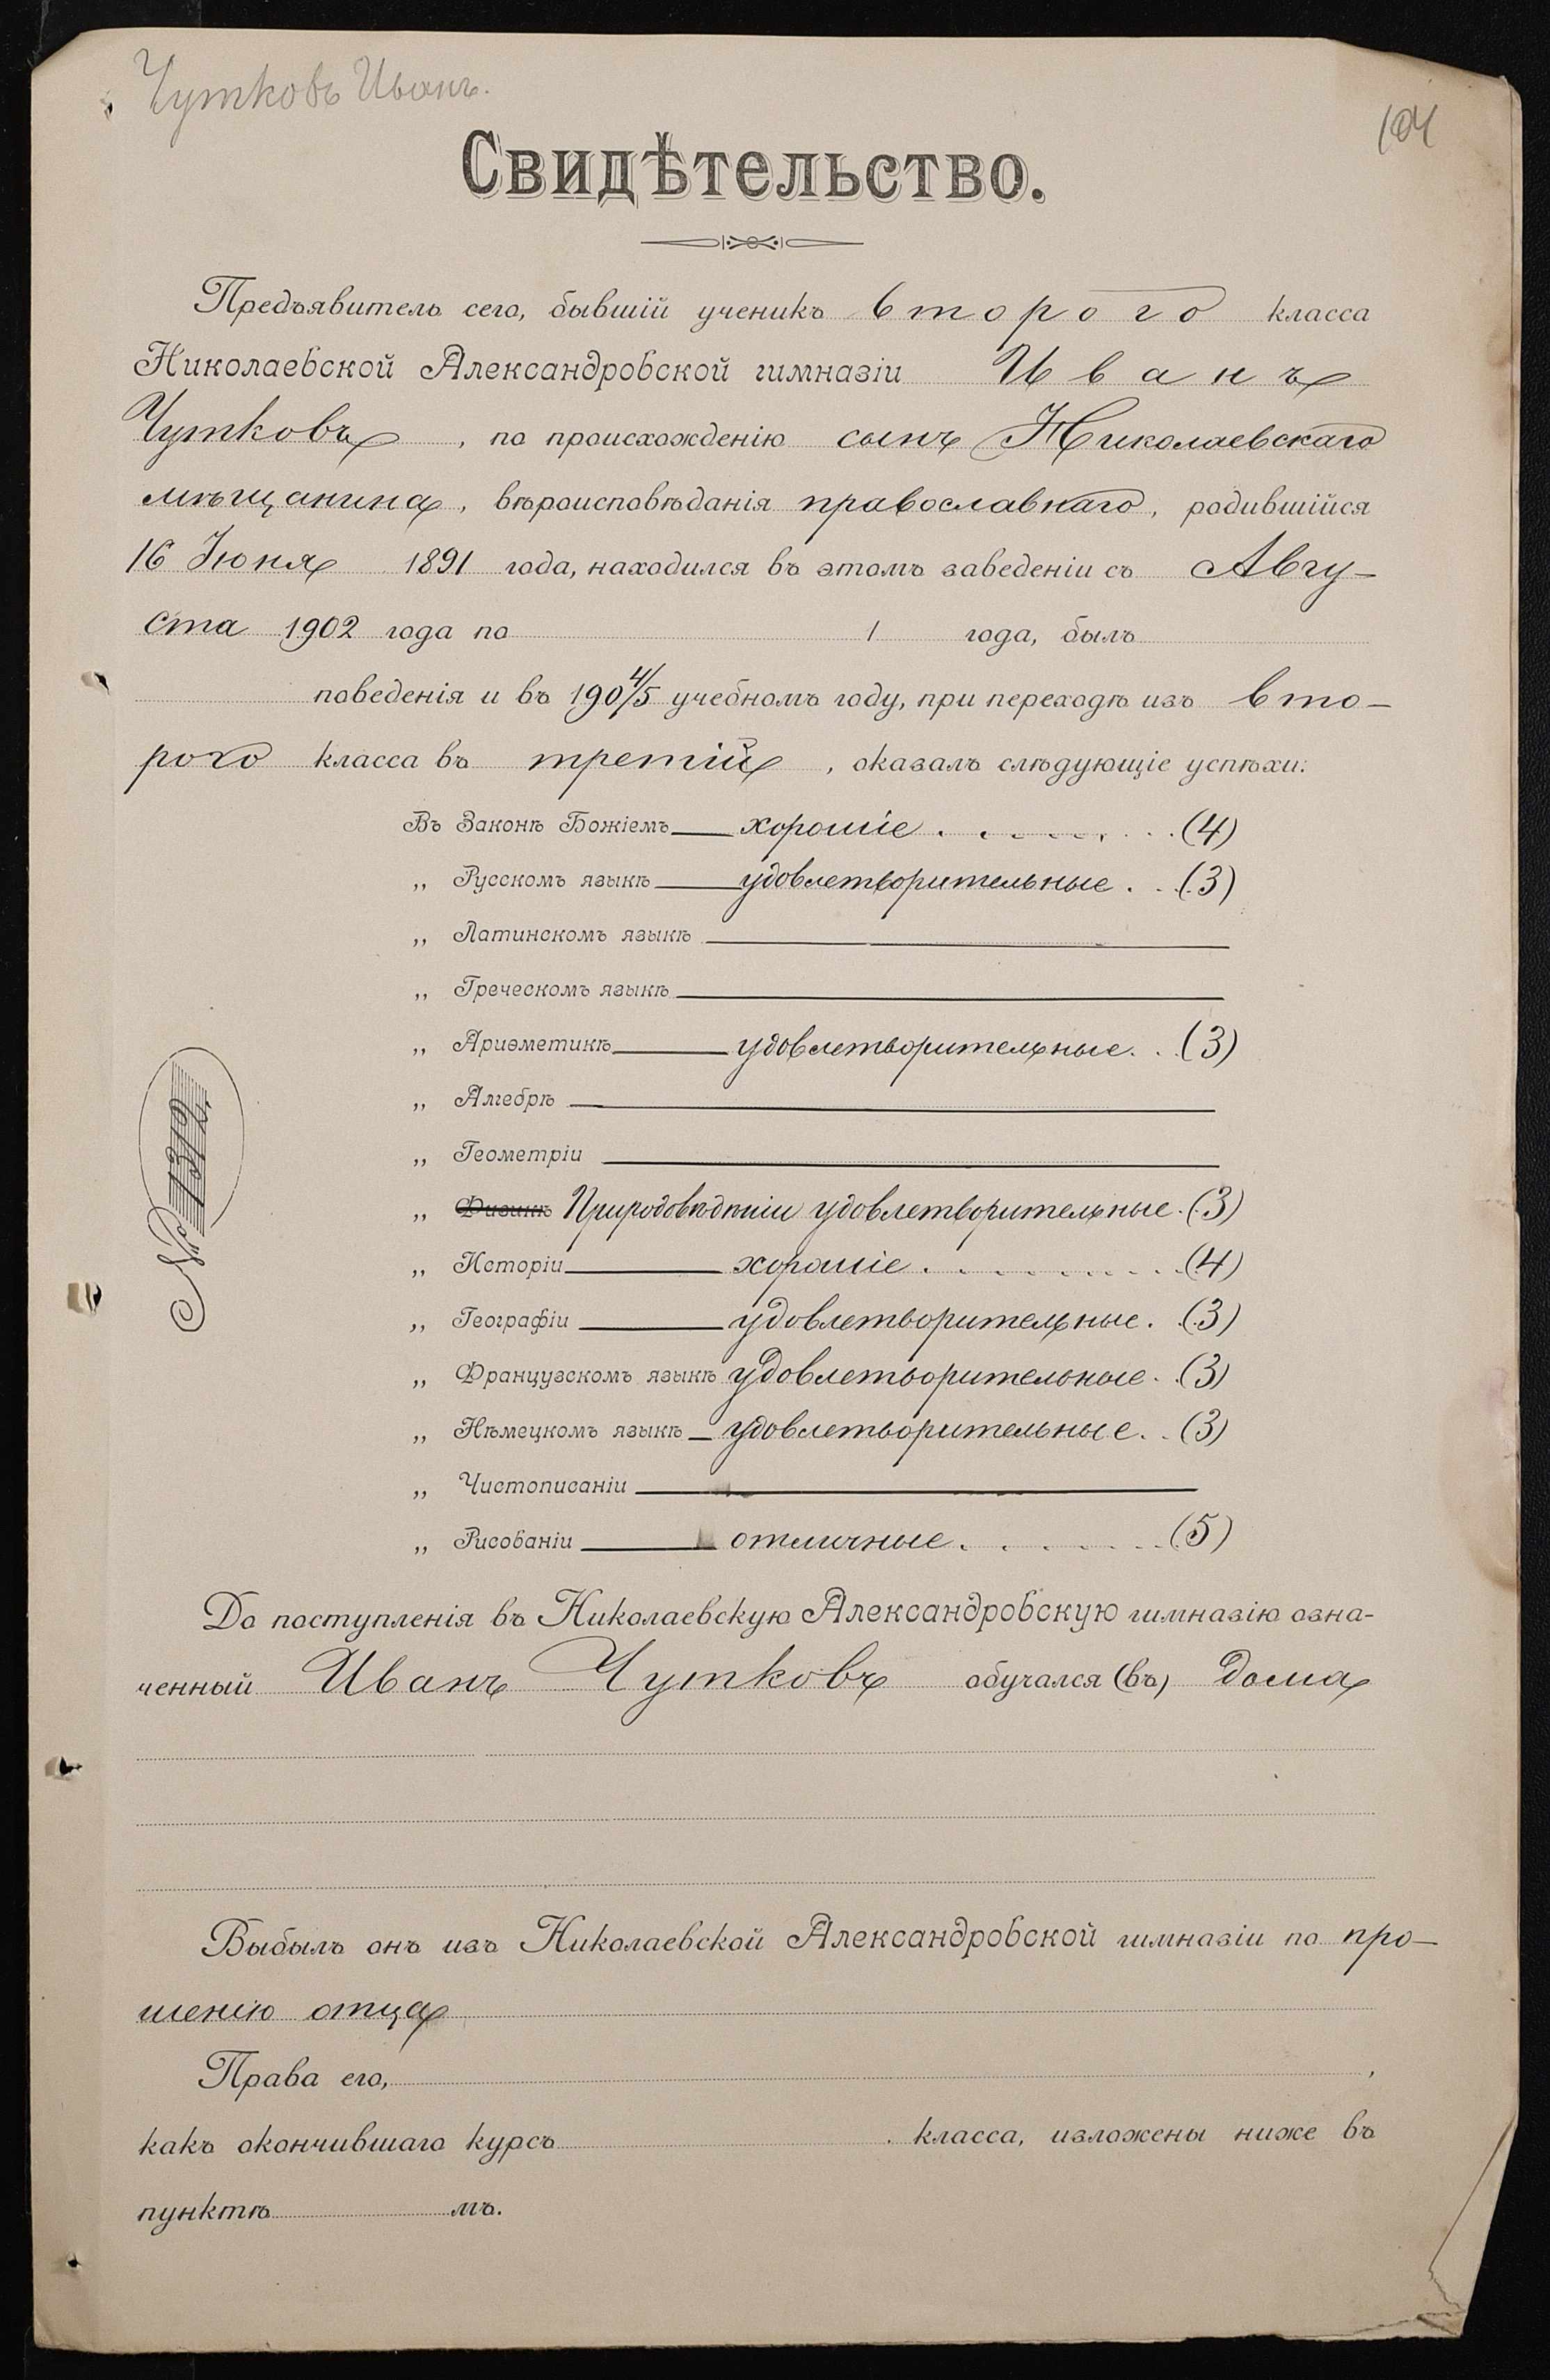 Чутковъ Иванъ.
104
Свидѣтельство.
Предъявитель сего, бывшій ученикъ второго класса
Николаевской Александровской гимназіи Иванъ
Чутковъ, по происхожденію сынъ Николаевскаго
мѣщанина, вѣроисповѣданія православнаго, родившійся
16 Іюня 1891 года, находился въ этомъ заведеніи съ Авгу-
ста 1902 года по 1 года, былъ
поведенія и въ 1904/5 учебномъ году, при переходѣ изъ вто-
рого класса въ третій, оказалъ слѣдующіе успѣхи:
Въ Законѣ Божіемъ хорошіе . . . . . . . . (4)
„ Русскомъ языкѣ удовлетворительные . . (3)
„ Латинскомъ языкѣ
„ Греческомъ языкѣ
„ Ариѳметикѣ удовлетворительные . . (3)
„ Алгебрѣ
„ Геометріи
„ Физикѣ Природовѣдѣніи удовлетворительные . (3)
„ Исторіи хорошіе . . . . . . . . (4)
„ Географіи удовлетворительные . (3)
„ Французскомъ языкѣ удовлетворительные . (3)
„ Нѣмецкомъ языкѣ удовлетворительные . . (3)
„ Чистописаніи
„ Рисованіи отличные . . . . . . . (5)
№ 1312.
До поступленія въ Николаевскую Александровскую гимназію озна-
ченный Иванъ Чутковъ обучался (въ) дома
Выбылъ онъ изъ Николаевской Александровской гимназіи по про-
шенію отца
Права его, ,
какъ окончившаго курсъ класса, изложены ниже въ
пунктѣ мъ.